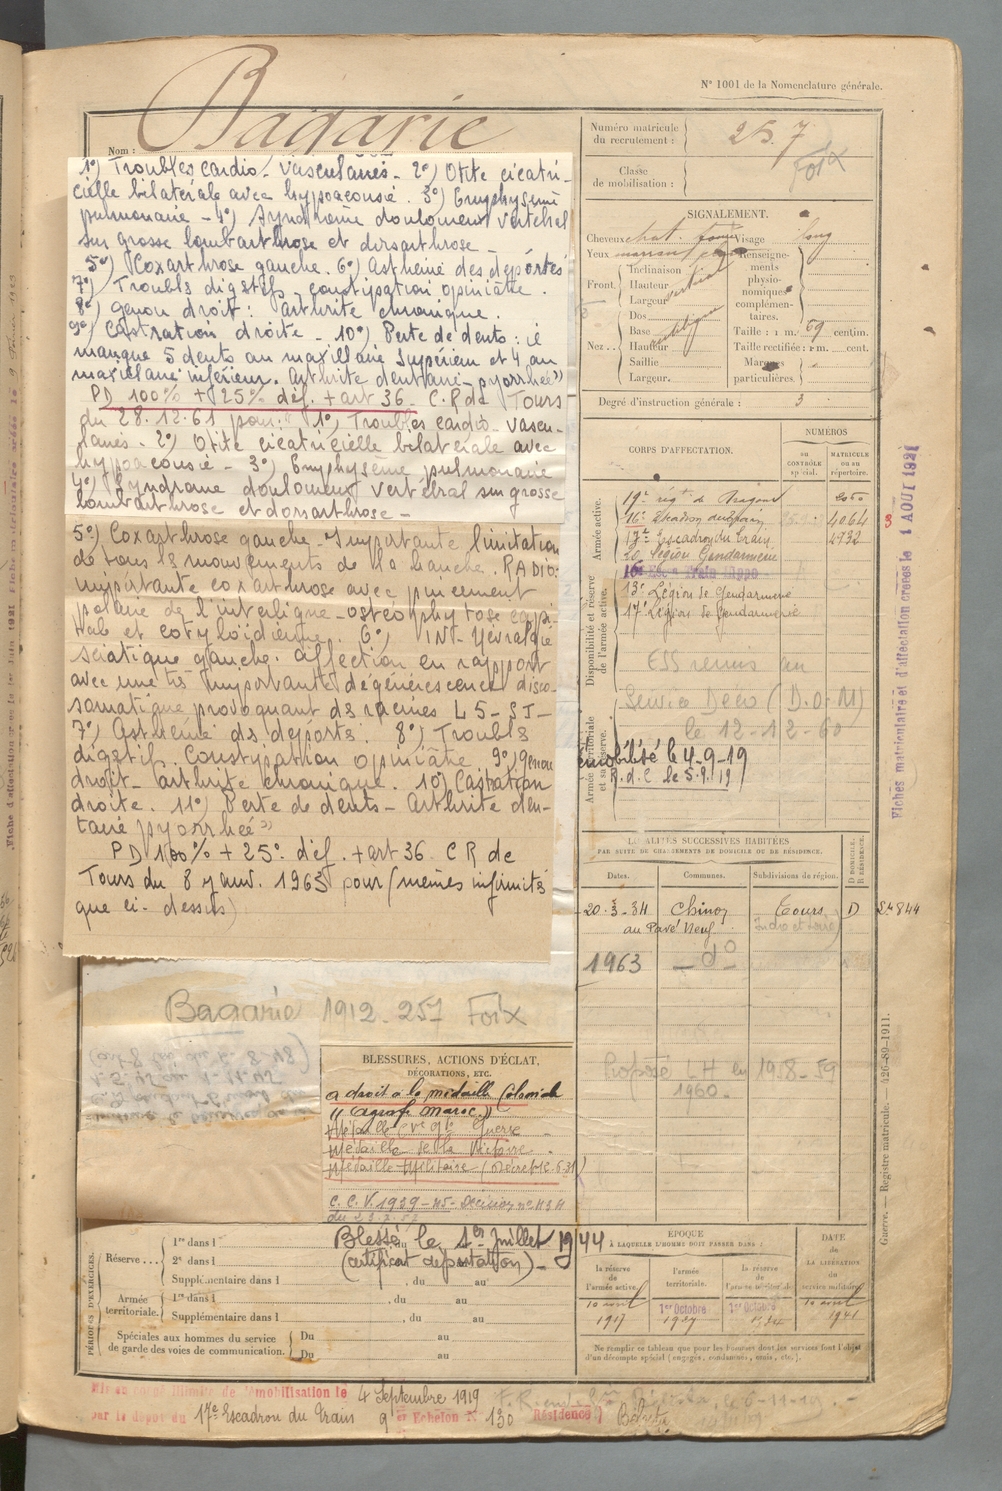 N° 1001 de la Nomenclature générale.
Bagarie
Nom :
Numéro matricule du recrutement : 257
Foix
Classe de mobilisation :
1°) Troubles cardio-vasculaires - 2°) Otite cicatri-
cielle bilatérale avec hypoacousie. 3°) Emphysème
pulmonaire - 4°) Syndrome douloureux vertébral
sur grosse lombarthrose et dorsarthrose -
5°) Coxarthrose gauche. 6°) Asthénie des déportés
7°) Troubles digestifs - constipation opiniâtre.
8°) genou droit : arthrite chronique.
9°) Castration droite - 10°) Perte de dents : il
manque 5 dents au maxillaire supérieur et 4 au
maxillaire inférieur. Arthrite dentaire - pyorrhée"
PD 100% + 25% déf. + art 36. C.R de Tours
du 28.12.61 pour : " 1°) Troubles cardio-vascu-
laires - 2°) Otite cicatricielle bilatérale avec
hypoacousie - 3°) Emphysème pulmonaire
4°) Syndrome douloureux vertébral sur grosse
lombarthrose et dorsarthrose -
5°) Coxarthrose gauche - Importante limitation
de tous les mouvements de la hanche. RADIO:
importante coxarthrose avec pincement
polaire de l'interligne - ostéophytose capi-
tale et cotyloïdienne. 6°) Névralgie
sciatique gauche. affection en rapport
avec une très importante dégénérescence disco-
somatique provoquant des racines L5-S1-
7°) Asthénie des déportés. 8°) Troubles
digestifs. Constipation opiniâtre 9°) genou
droit - arthrite chronique. 10°) Castration
droite. 11°) Perte de dents - Arthrite den-
taire pyorrhée"
PD 100% + 25° déf. + art 36 CR de
Tours du 8 janv. 1963 pour (mêmes infirmités
que ci-dessus)
SIGNALEMENT.
Cheveux chat. Visage long
Yeux marron
Renseignements physionomiques complémentaires.
Front. Inclinaison
Hauteur
Largeur
Nez.. Dos
Base
Hauteur
Saillie
Largeur.
Taille : 1 m. 69 centim.
Taille rectifiée : 1 m. cent.
Marques particulières.
Degré d'instruction générale : 3
CORPS D'AFFECTATION.
NUMÉROS
au CONTRÔLE spécial.
MATRICULE ou au répertoire.
Armée active.
19e régt de Dragons
16e Escadron du train 4064
17e Escadron du Train 4932
Légion Gendarmerie
Disponibilité et réserve de l'armée active.
13e Légion de Gendarmerie
17e Légion de Gendarmerie
ESS remis au
Service Déco (D.O.M)
le 12-12-60
Armée territoriale et sa réserve.
démobilisé le 4-9-19
Fiches matriculaire et d'affectation créées le 1 AOUT 1921
LOCALITÉS SUCCESSIVES HABITÉES
PAR SUITE DE CHANGEMENTS DE DOMICILE OU DE RÉSIDENCE.
Dates. Communes. Subdivisions de région. D DOMICILE. R RÉSIDENCE.
20-3-34 Chinon Tours D
au Pavé Neuf Indre et Loire
1963 - d° -
Proposé LH en 1958-59
1960-
Guerre. — Registre matricule. — 426-89-1911.
Bagarie 1912-257 Foix
BLESSURES, ACTIONS D'ÉCLAT,
DÉCORATIONS, ETC.
a droit à la médaille Coloniale
"Agrafe Maroc"
Médaille Guerre
Médaille de la Victoire
Médaille Militaire
C.C.V. 1939-45 - Décision
Blessé le 1er Juillet 1944
(certificat déportation) -
PÉRIODES D'EXERCICES.
Réserve... 1re dans l
2e dans l
Supplémentaire dans l , du au
Armée territoriale. 1re dans l , du au
Supplémentaire dans l , du au
Spéciales aux hommes du service de garde des voies de communication. Du au
Du au
ÉPOQUE
À LAQUELLE L'HOMME DOIT PASSER DANS :
la réserve de l'armée active.
l'armée territoriale.
la réserve de l'armée territoriale.
DATE de LA LIBÉRATION du service militaire.
10 avril 1er Octobre 1er Octobre 10 avril
Ne remplir ce tableau que pour les hommes dont les services font l'objet
d'un décompte spécial (engagés, condamnés, omis, etc.).
Mis en congé illimité de démobilisation le 4 Septembre 1919
par le dépôt du 17e Escadron du Train 9e Echelon N° 130 Résidence